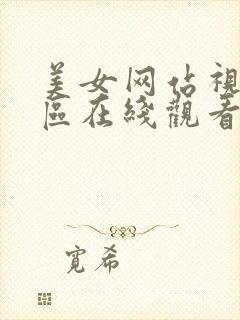 美女网站視
區在綫觀看
寬希